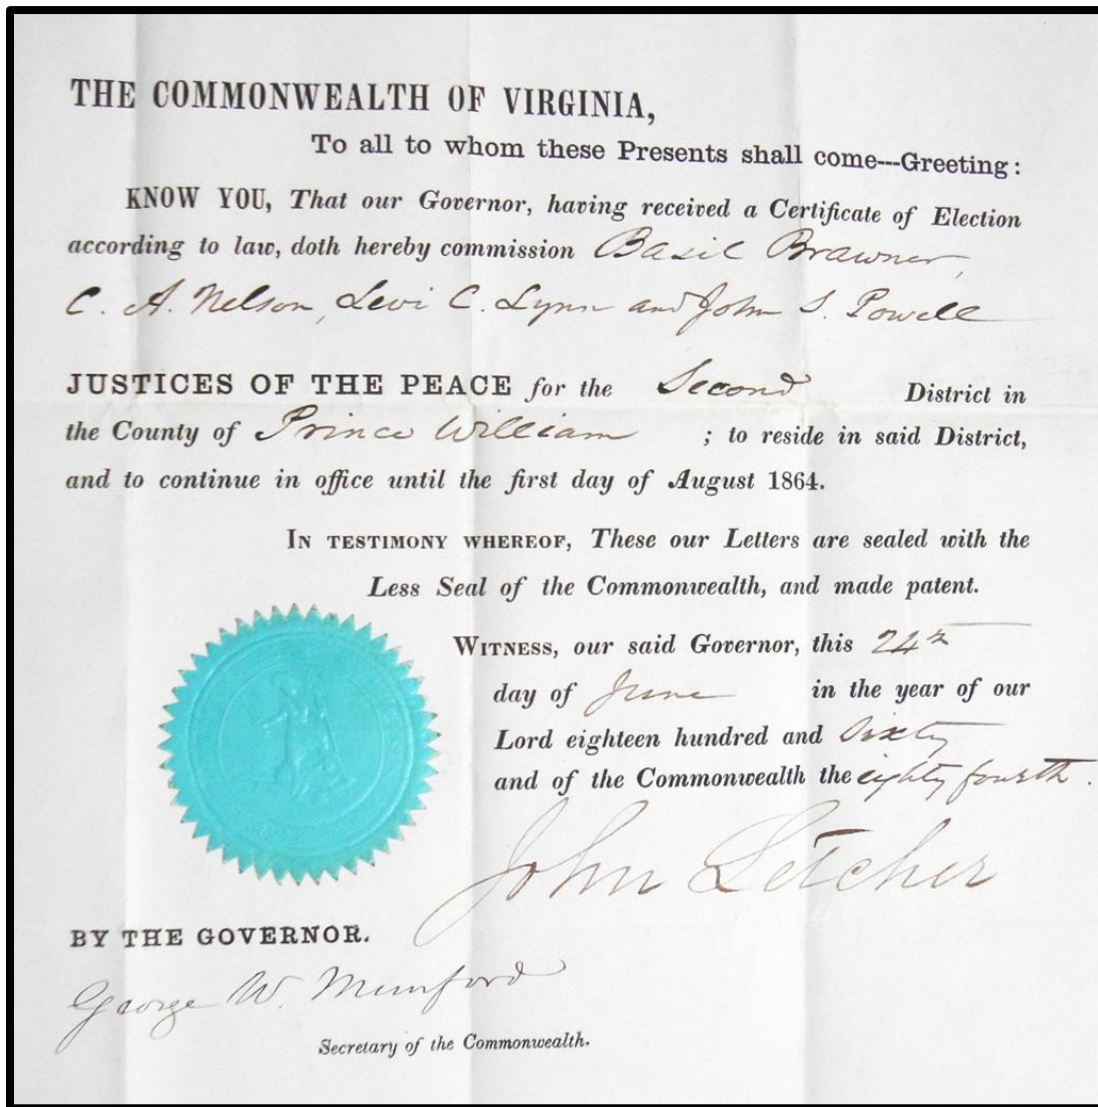 THE COMMONWEALTH OF VIRGINIA,
To all to whom these Presents shall come---Greeting:
KNOW YOU, That our Governor, having received a Certificate of Election
according to law, doth hereby commission Basil Brawner,
C. A. Nelson, Levi C. Lynn and John S. Powell
JUSTICES OF THE PEACE for the Second District in
the County of Prince William ; to reside in said District,
and to continue in office until the first day of August 1864.
IN TESTIMONY WHEREOF, These our Letters are sealed with the
Less Seal of the Commonwealth, and made patent.
WITNESS, our said Governor, this 24th
day of June in the year of our
Lord eighteen hundred and Sixty
and of the Commonwealth the eighty fourth.
John Letcher
BY THE GOVERNOR.
George W. Munford
Secretary of the Commonwealth.